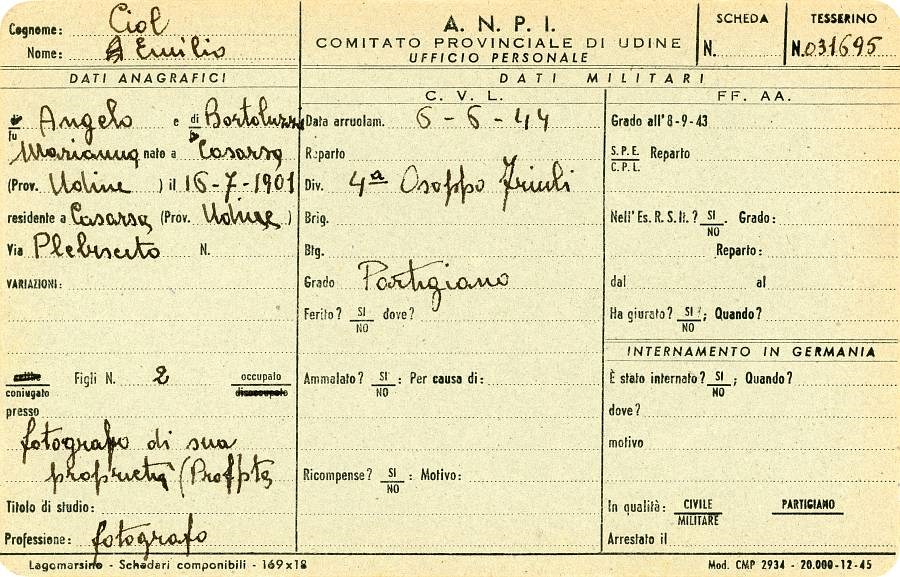 Cognome: Ciol
Nome: Emilio
A. N. P. I.
COMITATO PROVINCIALE DI UDINE
UFFICIO PERSONALE
SCHEDA
N.
TESSERINO
N. 031695
DATI ANAGRAFICI
di
fu Angelo e di Bortoluzzi
Marianna nato a Casarsa
(Prov. Udine ) il 16-7-1901
residente a Casarsa (Prov. Udine )
Via Plebiscito N.
VARIAZIONI:
celibe
coniugato Figli N. 2 occupato
disoccupato
presso
fotografo di sua
proprietà (
Titolo di studio:
Professione: fotografo
DATI MILITARI
C. V. L.
Data arruolam. 6 - 6 - 44
Reparto
Div. 4ª Osoppo Friuli
Brig.
Btg.
Grado Partigiano
Ferito? SI
NO dove?
Ammalato? SI
NO : Per causa di:
Ricompense? SI
NO : Motivo:
FF. AA.
Grado all'8-9-43
S. P. E.
C. P. L. Reparto
Nell'Es. R. S. It.? SI
NO . Grado:
Reparto:
dal al
Ha giurato? SI
NO ; Quando?
INTERNAMENTO IN GERMANIA
È stato internato? SI
NO ; Quando?
dove?
motivo
In qualità: CIVILE
MILITARE PARTIGIANO
Arrestato il
Lagomarsino - Schedari componibili - 169x18
Mod. CMP 2934 - 20.000-12-45